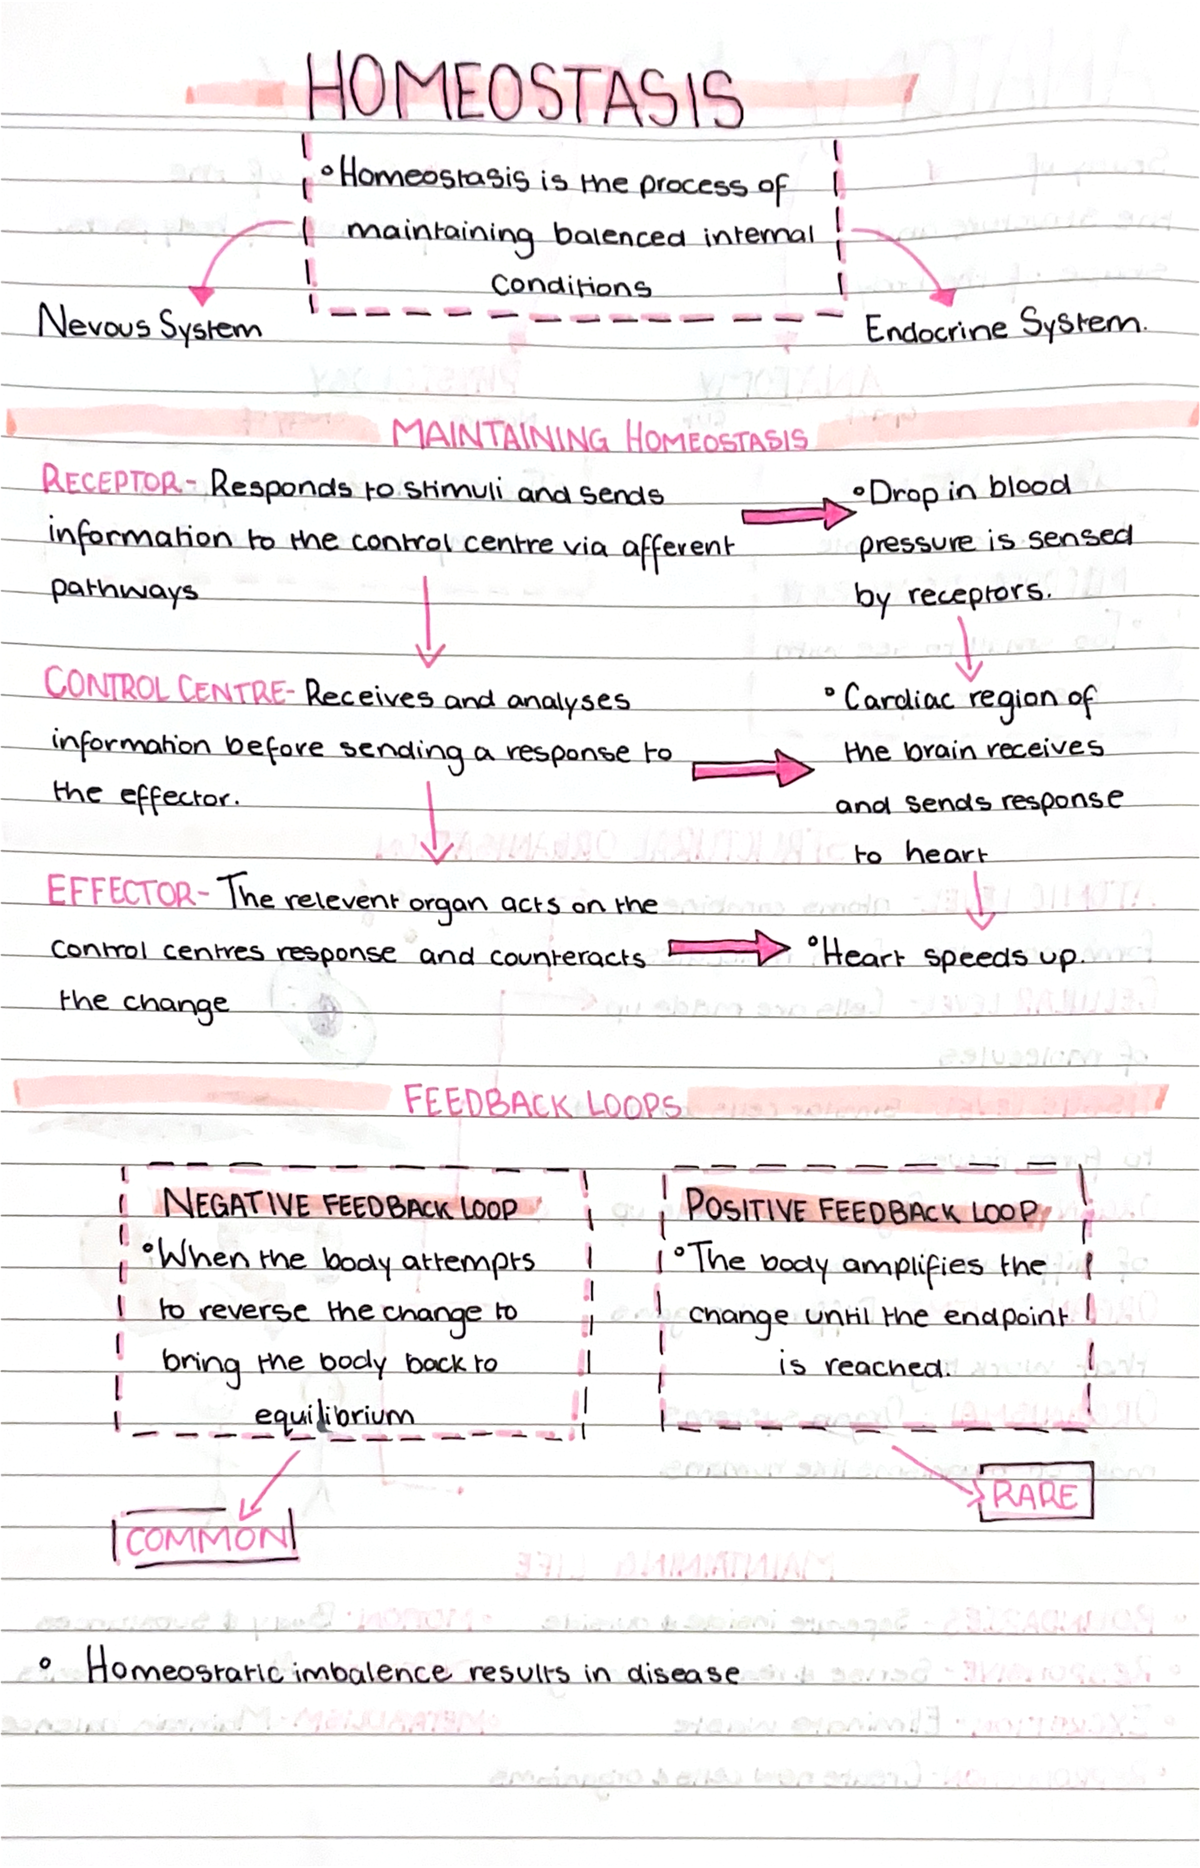 HOMEOSTASIS
°Homeostasis is the process of
maintaining balenced internal
conditions
Nevous System
Endocrine System.
MAINTAINING HOMEOSTASIS
RECEPTOR- Responds to stimuli and sends
information to the control centre via afferent
pathways
°Drop in blood
pressure is sensed
by receptors.
CONTROL CENTRE- Receives and analyses
information before sending a response to
the effector.
°Cardiac region of
the brain receives
and sends response
to heart
EFFECTOR- The relevent organ acts on the
control centres response and counteracts
the change
°Heart speeds up.
FEEDBACK LOOPS
NEGATIVE FEEDBACK LOOP
°When the body attempts
to reverse the change to
bring the body back to
equilibrium
COMMON
POSITIVE FEEDBACK LOOP
°The body amplifies the
change until the endpoint
is reached.
RARE
° Homeostatic imbalence results in disease